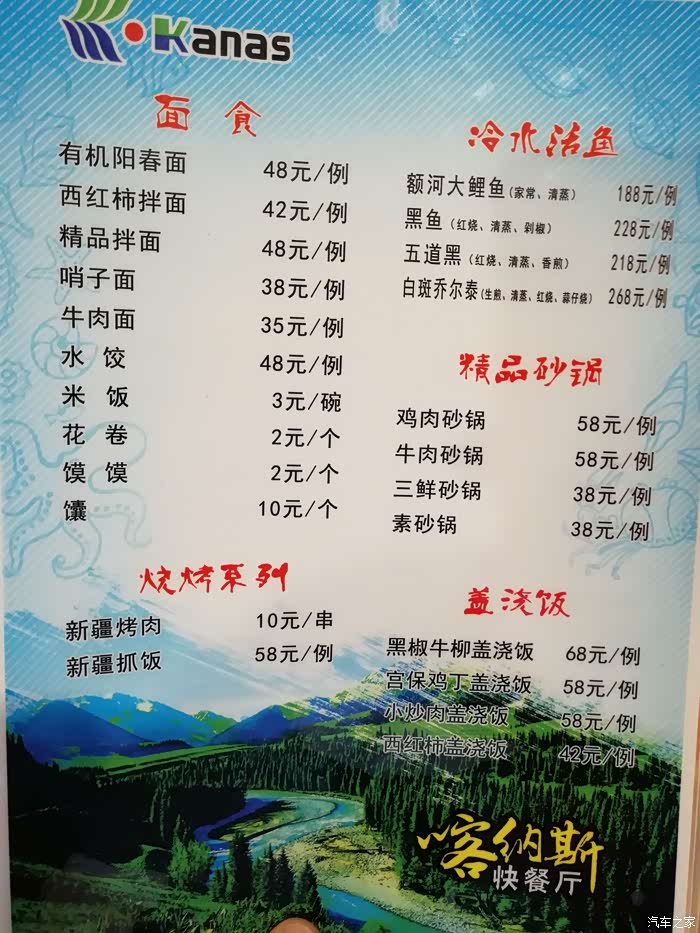 Kanas
面 食
有机阳春面 48元/例
西红柿拌面 42元/例
精品拌面 48元/例
哨子面 38元/例
牛肉面 35元/例
水 饺 48元/例
米 饭 3元/碗
花 卷 2元/个
馍 馍 2元/个
馕 10元/个
烧烤系列
新疆烤肉 10元/串
新疆抓饭 58元/例
冷水活鱼
额河大鲤鱼(家常、清蒸) 188元/例
黑鱼(红烧、清蒸、剁椒) 228元/例
五道黑(红烧、清蒸、香煎) 218元/例
白斑乔尔泰(生煎、清蒸、红烧、蒜仔烧) 268元/例
精品砂锅
鸡肉砂锅 58元/例
牛肉砂锅 58元/例
三鲜砂锅 38元/例
素砂锅 38元/例
盖浇饭
黑椒牛柳盖浇饭 68元/例
宫保鸡丁盖浇饭 58元/例
小炒肉盖浇饭 58元/例
西红柿盖浇饭 42元/例
喀纳斯
快餐厅
汽车之家